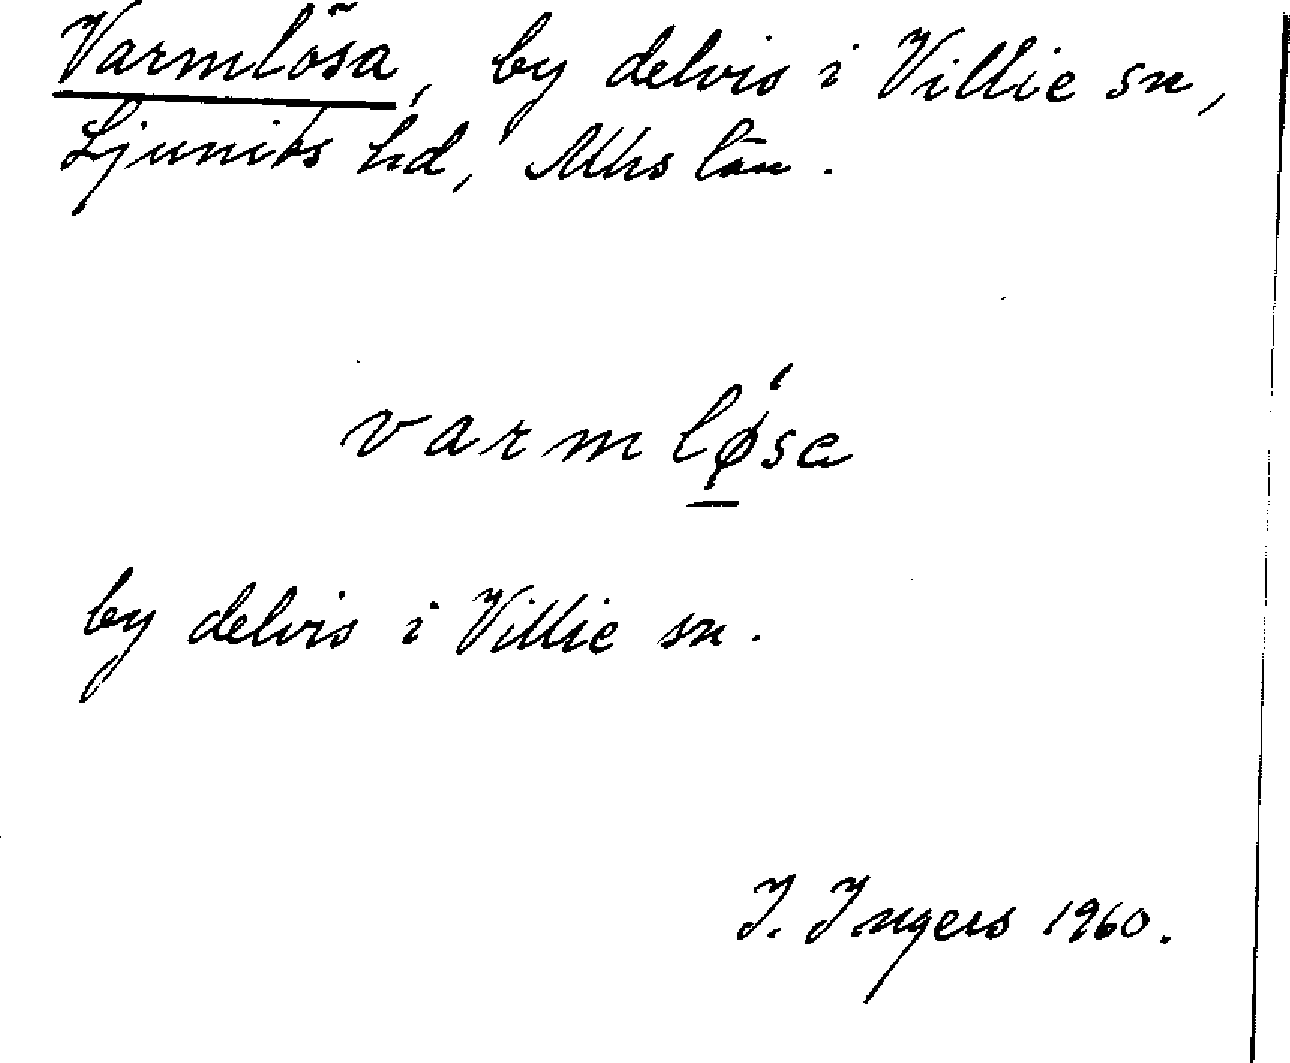 Varmlösa, by delvis i Villie sn,
Ljunits hd, Mhs län.
varmløsa
by delvis i Villie sn.
I. Ingers 1960.